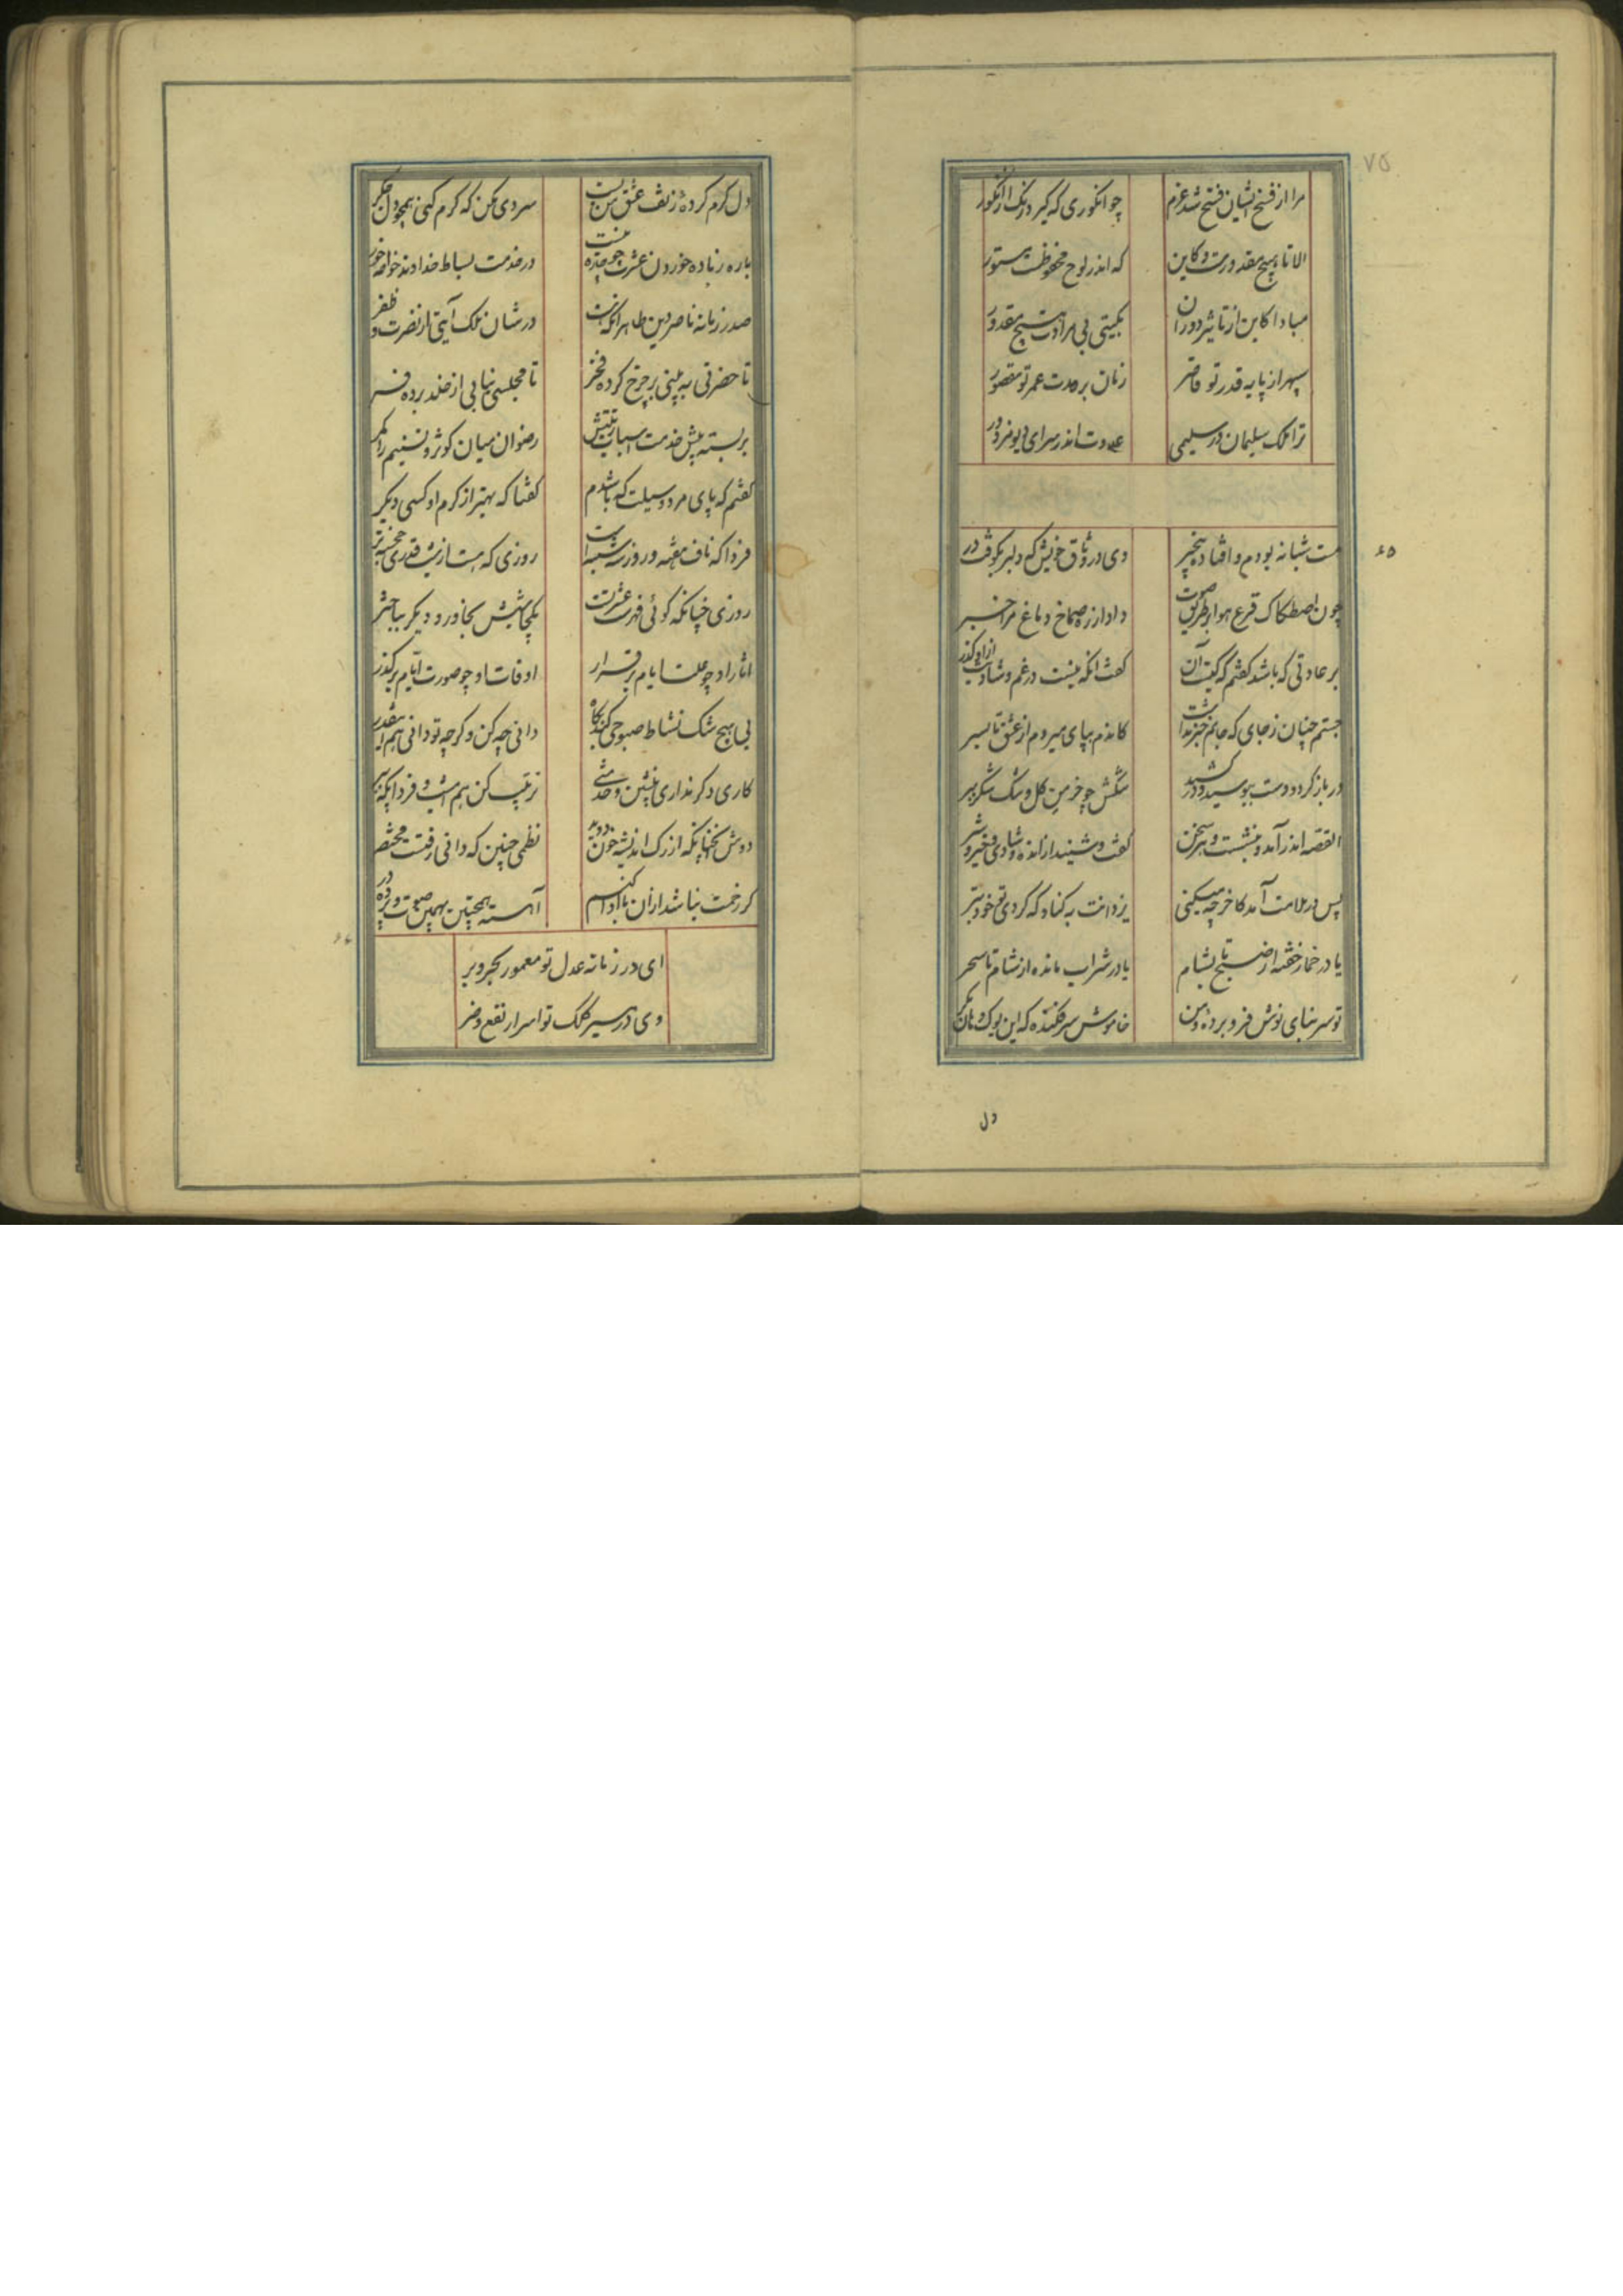 ۷۵
مرا از فتح ایشان فتح شد عزم
چو انگوری که گیرد رنگ از انگور
الا تا هیچ مقدورست و کاین
که اندر لوح محفوظست مستور
مبادا کاین از تاثیر دوران
بگیتی بی مرادت هیچ مقدور
سپهر از پایه قدر تو قاصر
زمان بر مدت عمر تو مقصور
ترا ملک سلیمان در سلیمی
عدوت اندر سرای دیو مزدور
۶۵
مست شبانه بودم و افتاده بیخبر
دی در وثاق خویش که دلبر بکوفت در
چون اصطکاک قرع هوا از طریق صوت
داد از ره صماخ دماغ مرا خبر
بر عادتی که باشد گفتم که کیست آن
گفت آنکه نیست در غم و شادیت ازو گذر
جستم چنان ز جای که جانم خبر نداشت
کاندم بپای میروم از عشق تا بسر
در باز کرد و دست ببوسید و در کشید
تنگش چو خرمن گل و تنگ شکر ببر
القصه اندر آمد و بنشست و هر سخن
گفت و شنید از انده و شادی و خیر و شر
پس در ملامت آمد کاخر چه میکنی
یزدانت به کناد که کردی تو خود بتر
یا در خمار خفته از صبح تا بشام
یا در شراب مانده از شام تا سحر
تو سر بنای نوش فرو برده و من
خاموش سر فکنده که این بوک و آن مگر
دل
دل گرم کرده ز تف عشق من بست
سردی مکن که گرم کنی همچو دل جگر
باره زیاده خوردن عشرت چو جده نیست
در خدمت بساط خداوند خواجه خور
صدر زمانه ناصر دین طاهر آنکه هست
در شان ملک آیتی از نصرت و ظفر
تا حضرتی ببینی بر چرخ کرده فخر
تا مجلسی بیابی از خلد برده فر
بر بسته پیش خدمت اسباب رتبتش
رضوان میان کوثر و تسنیم را کمر
گفتم که پای مرد و وسیلت که باشدم
گفتا که بهتر از کرم او کسی دگر
فردا که ناف هفته و روز سه شنبه است
روزی که هست از شب قدری خجسته تر
روزی چنانکه گوئی فهرست عشرتست
یکجا بهشت بخاور و دیگر بباختر
آثار او چو علت ایام بر قرار
اوقات او چو صورت ایام بر گذر
بی هیچ شک نشاط صبوحی کند پگاه
دانی چه کن و گرچه تو دانی هم اینقدر
کاری دگر نداری بنشین و خدمتی
ترتیب کن هم امشب و فردا پگه ببر
دوش آنچنانکه از رک اندیشه خون دوید
نظمی چنین که دانی رفتست مختصر
گر زحمت نباشد از آن تا ادا کنیم
آهسته همچنین بهمین صوت پرده در
۶۶
ای در زمانه عدل تو معمور بحر و بر
وی در مسیر کلک تو اسرار نفع و ضر